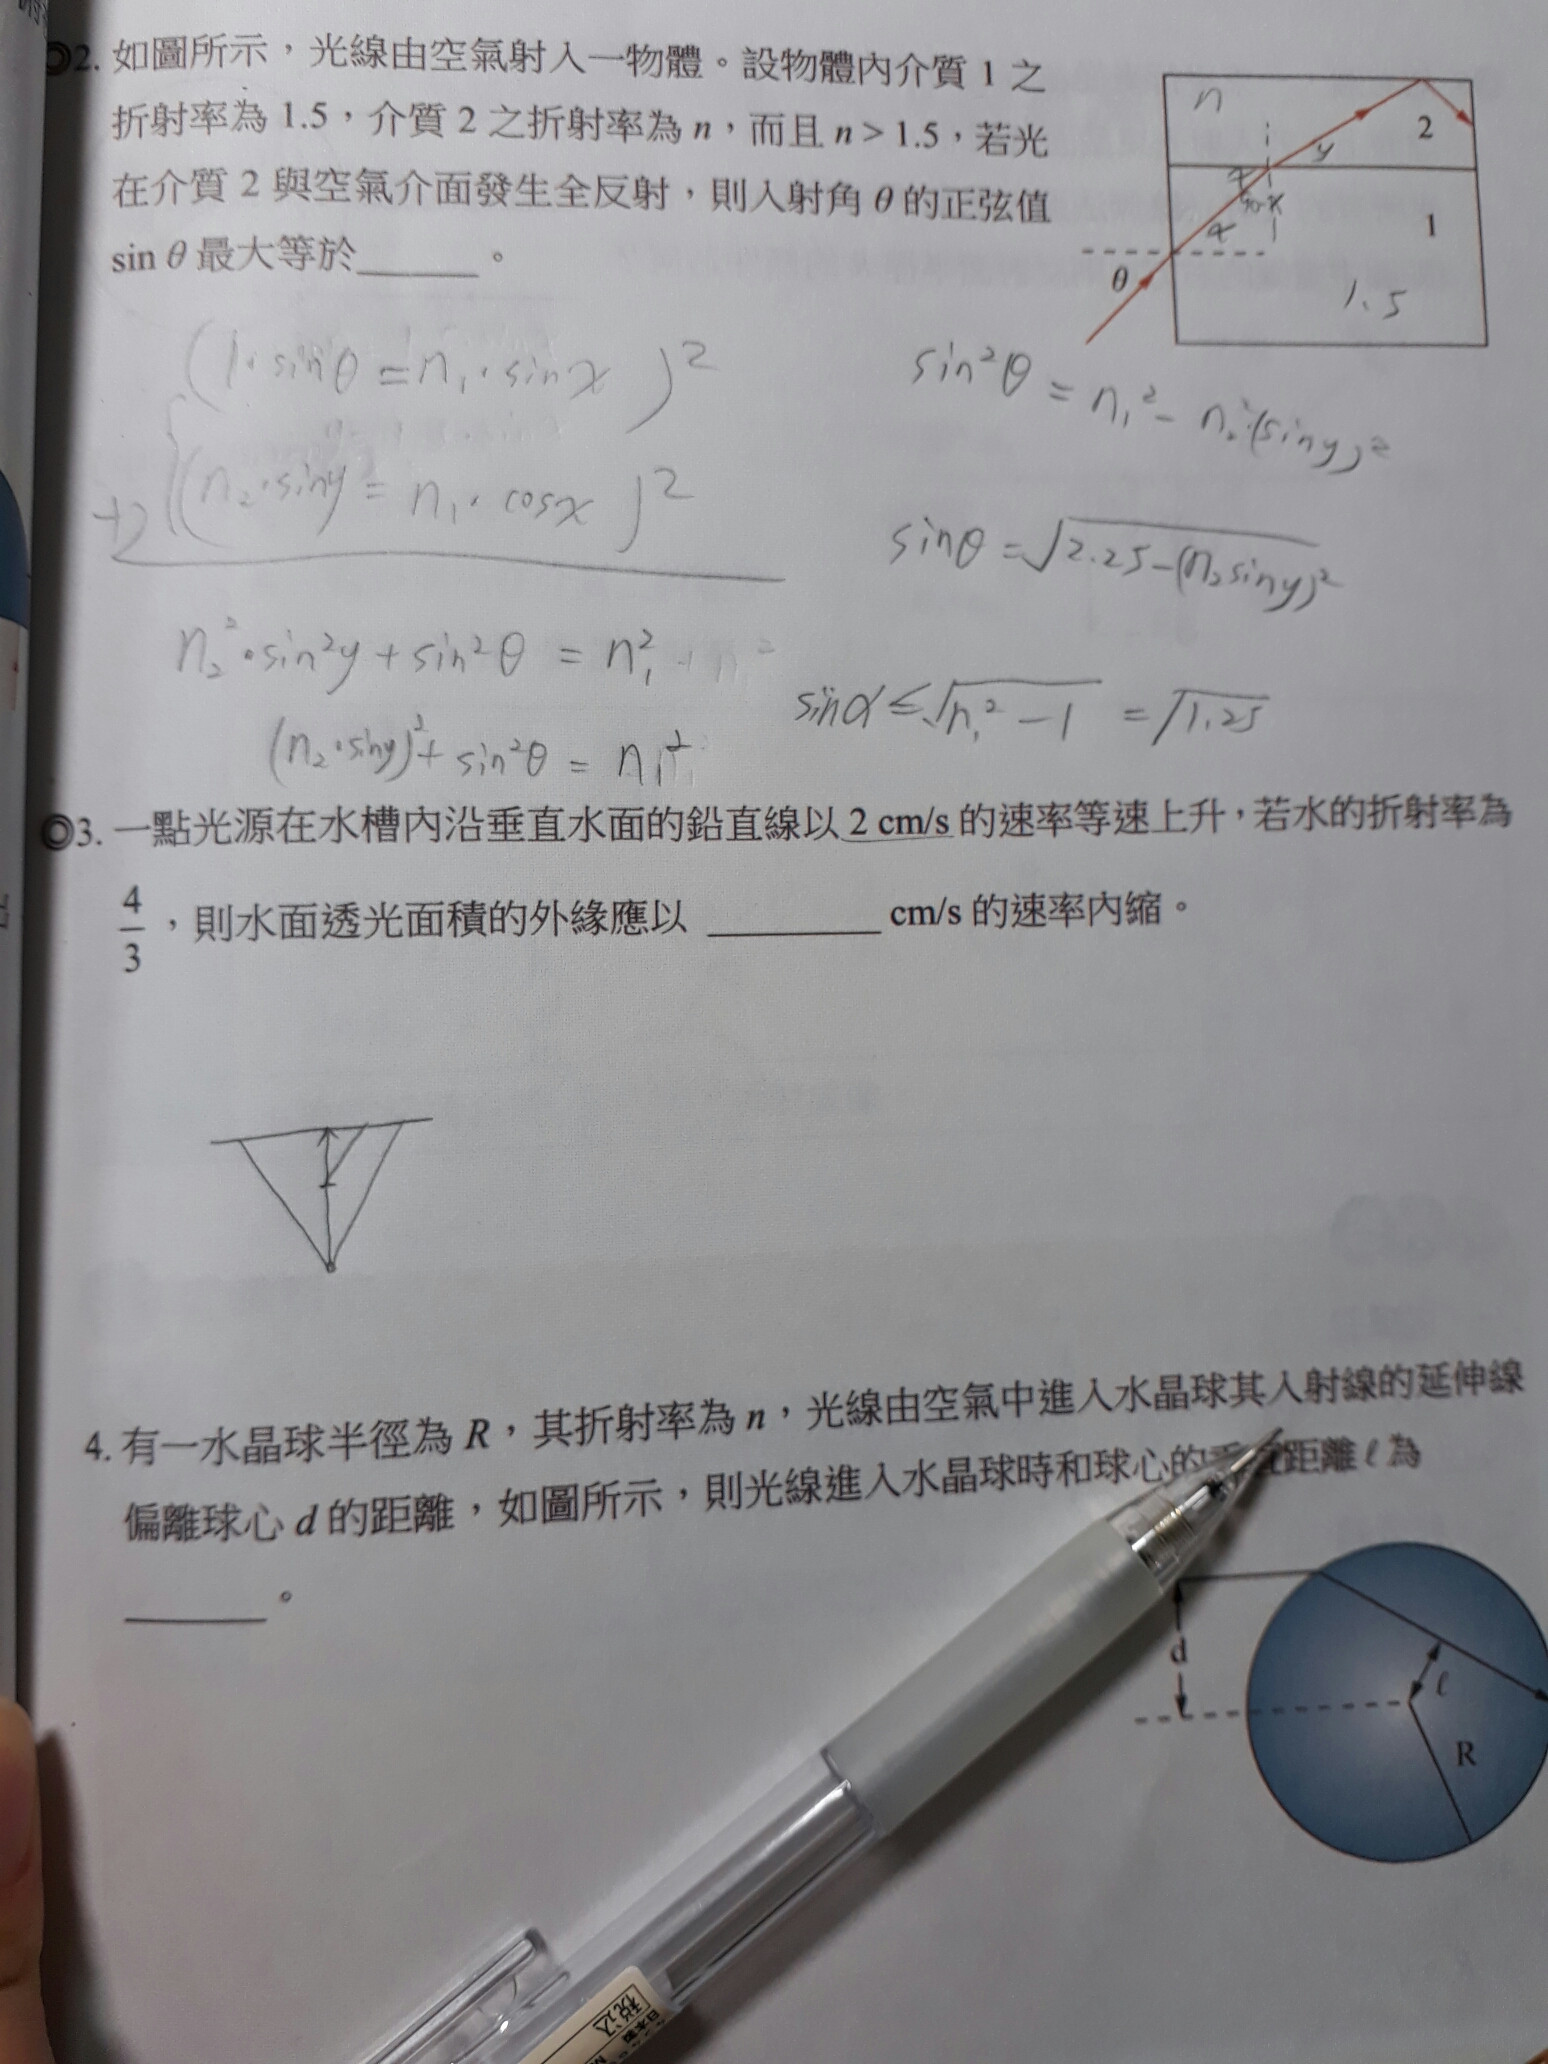 2. 如圖所示，光線由空氣射入一物體。設物體內介質 1 之
折射率為 1.5，介質 2 之折射率為 n，而且 n > 1.5，若光
在介質 2 與空氣介面發生全反射，則入射角 θ 的正弦值
sin θ 最大等於______。
n
2
y
x
x
1
θ
1.5
(1·sinθ = n₁·sinx)²
+) (n₂·siny = n₁·cosx)²
n₂²·sin²y + sin²θ = n₁²
(n₂·siny)² + sin²θ = n₁²
sin²θ = n₁² - n₂²(siny)²
sinθ = √2.25-(n₂siny)²
sinα ≤ √n₁² - 1 = √1.25
3. 一點光源在水槽內沿垂直水面的鉛直線以 2 cm/s 的速率等速上升，若水的折射率為
4/3，則水面透光面積的外緣應以 ________ cm/s 的速率內縮。
4. 有一水晶球半徑為 R，其折射率為 n，光線由空氣中進入水晶球其入射線的延伸線
偏離球心 d 的距離，如圖所示，則光線進入水晶球時和球心的距離 ℓ 為
______。
d
ℓ
R
税込
日本製